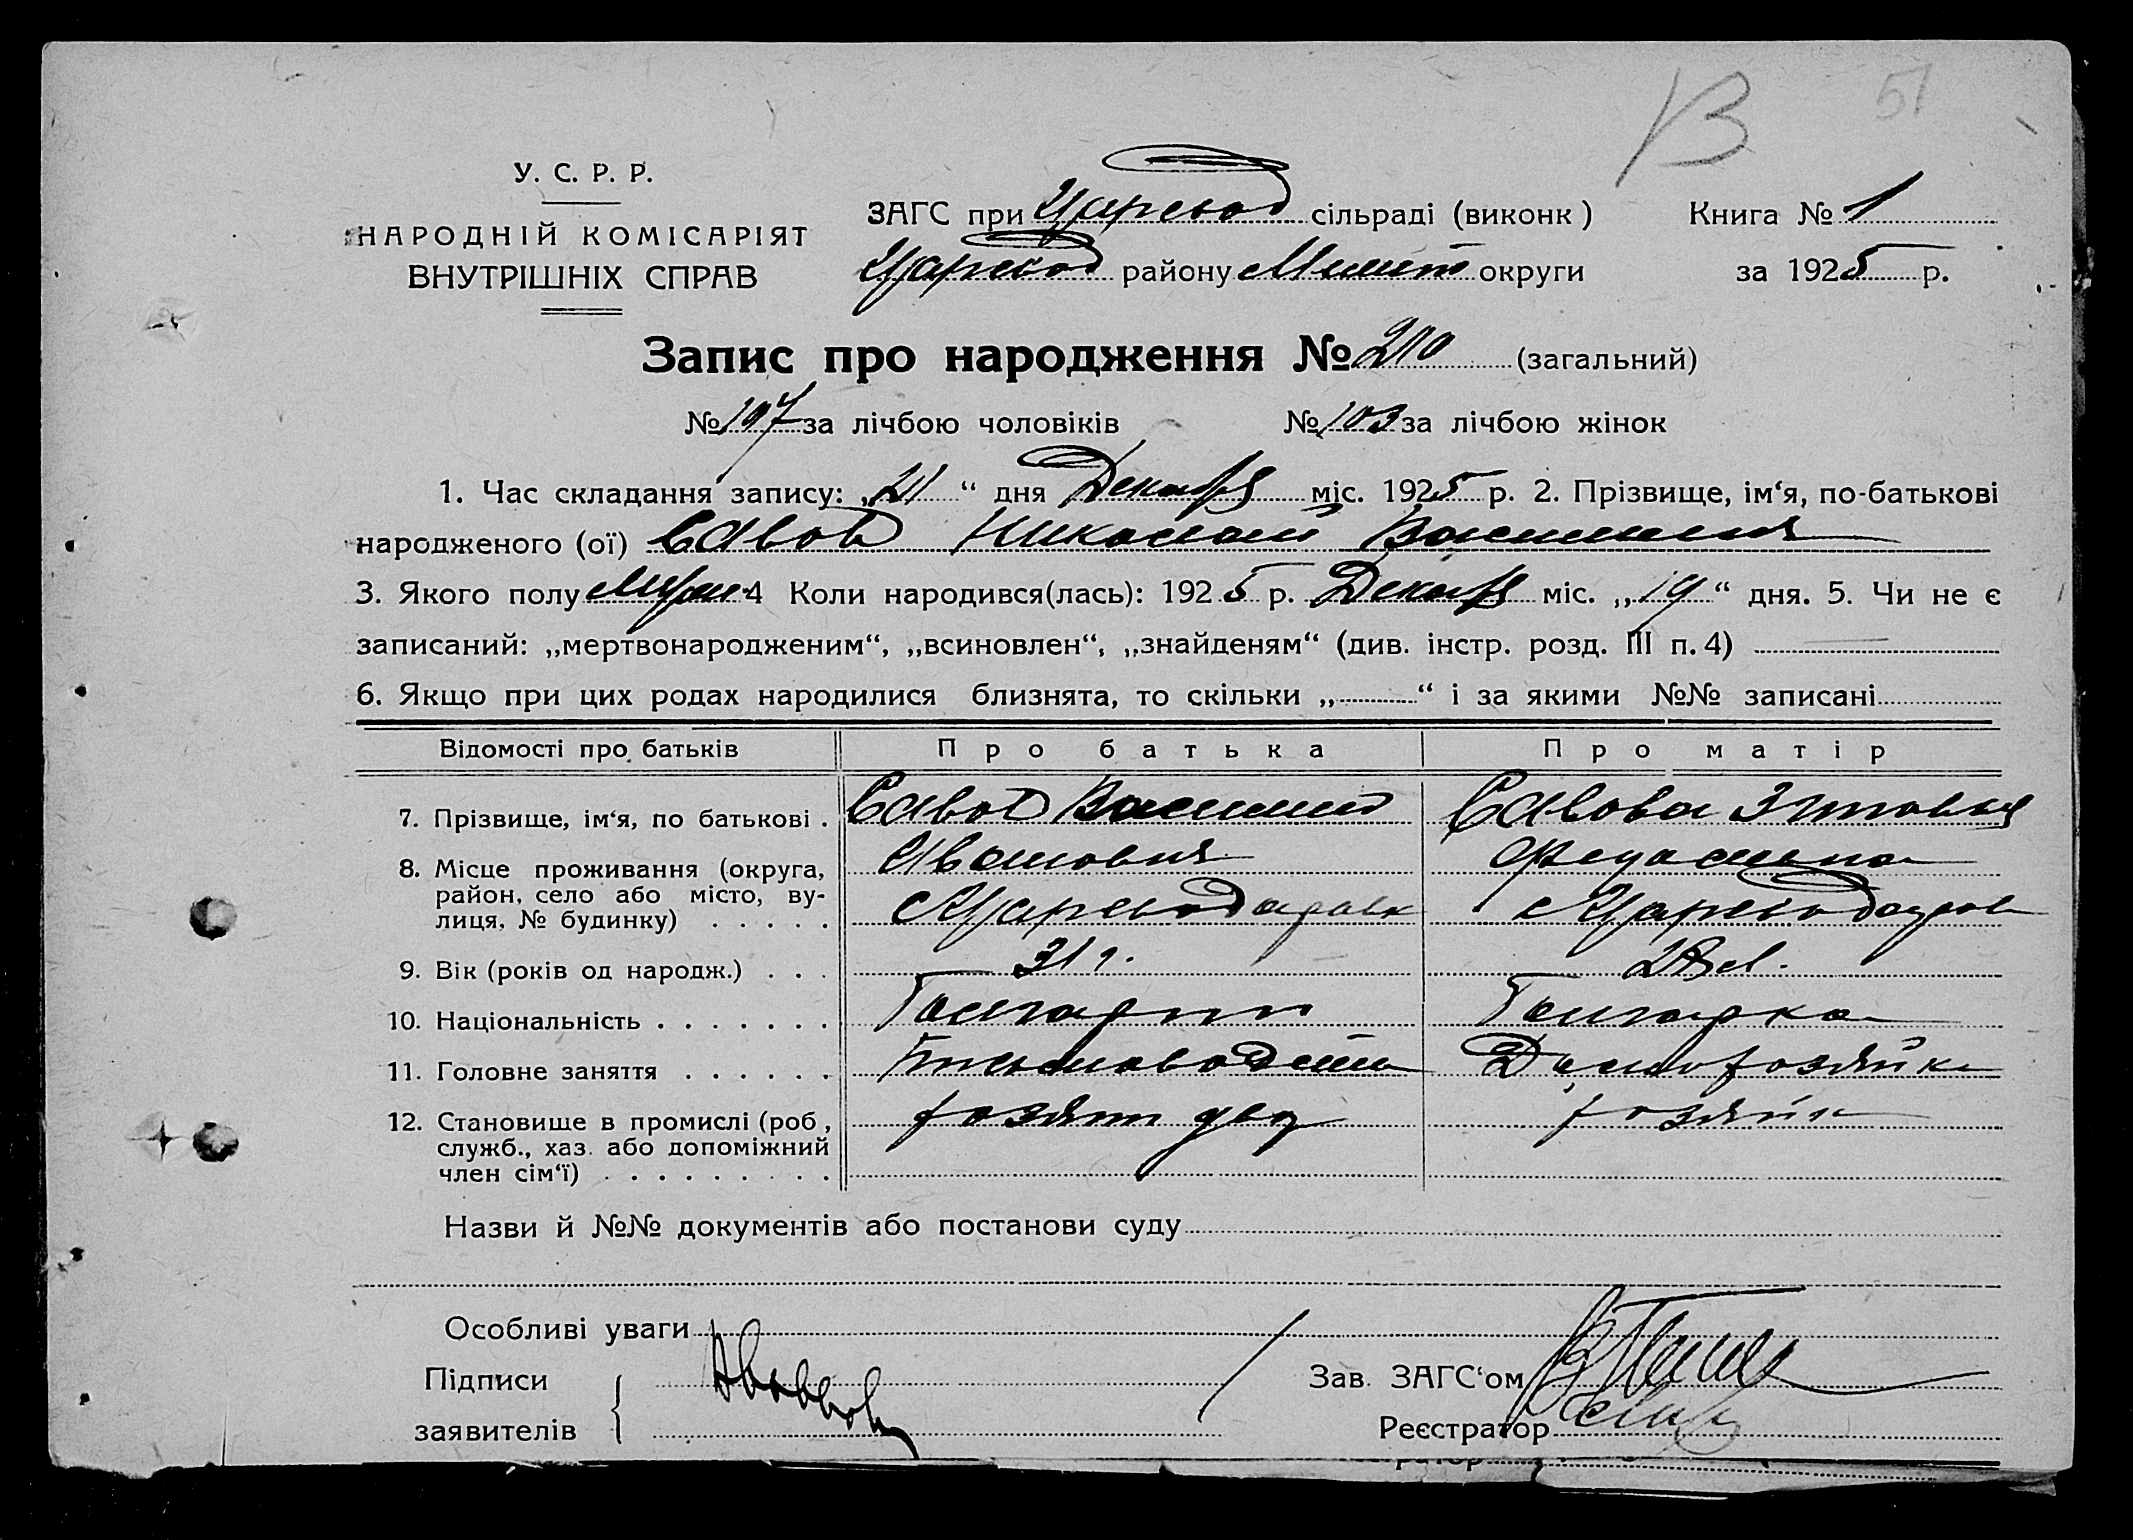 В 51
У. С. Р. Р.
НАРОДНІЙ КОМІСАРІЯТ
ВНУТРІШНІХ СПРАВ
ЗАГС при Царевод сільраді (виконк)
Царевод району Мелит округи
Книга № 1
за 1925 р.
Запис про народження № 210 (загальний)
№ 107 за лічбою чоловіків № 103 за лічбою жінок
1. Час складання запису: „21“ дня Декабря міс. 1925 р. 2. Прізвище, ім‘я, по-батькові
народженого (ої) Савов Николай Васильевич
3. Якого полу Мужс 4 Коли народився(лась): 1925 р. Декабря міс. „19“ дня. 5. Чи не є
записаний: „мертвонародженим“, „всиновлен“, „знайденям“ (див. інстр. розд. III п. 4)
6. Якщо при цих родах народилися близнята, то скільки „ “ і за якими №№ записані
Відомості про батьків Про батька Про матір
7. Прізвище, ім‘я, по батькові . Савов Василий Савова
8. Місце проживання (округа, Иванович
район, село або місто, ву-
лиця, № будинку) . . . . .
9. Вік (років од народж.) . . . 31 г. 28 л.
10. Національність . . . . . . . Болгарин Болгарка
11. Головне заняття . . . . . . Домохозяйка
12. Становище в промислі (роб,
служб., хаз. або допоміжний
член сім‘ї) . . . . . . . . .
Назви й №№ документів або постанови суду
Особливі уваги
Підписи
заявителів
Зав. ЗАГС‘ом
Реєстратор